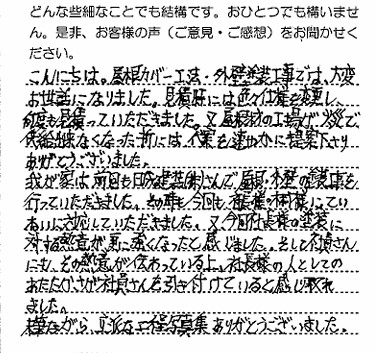 どんな些細なことでも結構です。おひとつでも構いませ
ん。是非、お客様の声（ご意見・ご感想）をお聞かせく
ださい。
こんにちは。屋根カバー工法・外壁塗装工事では、大変
お世話になりました。見積時には色々仕様を変更し、
何度も見積っていただきました。又屋根材の工場が火災で、
供給出来なくなった折には代案も速やかに提案下さり
ありがとうございました。
我が家は前回も日の出建装さんで屋根・外壁の塗装を
行っていただきました。その時も今回も社長様の対応にてい
ねいに対応していただきました。又今回社長様の塗装に
対する熱意が更に強くなったと感じました。そして社員さん
にも、その熱意が伝わっている上、社長様の人としての
あたたかさが社員さんを引き付けていると感じ取れ
ました。
様ながら 立派な工程写真集ありがとうございました。